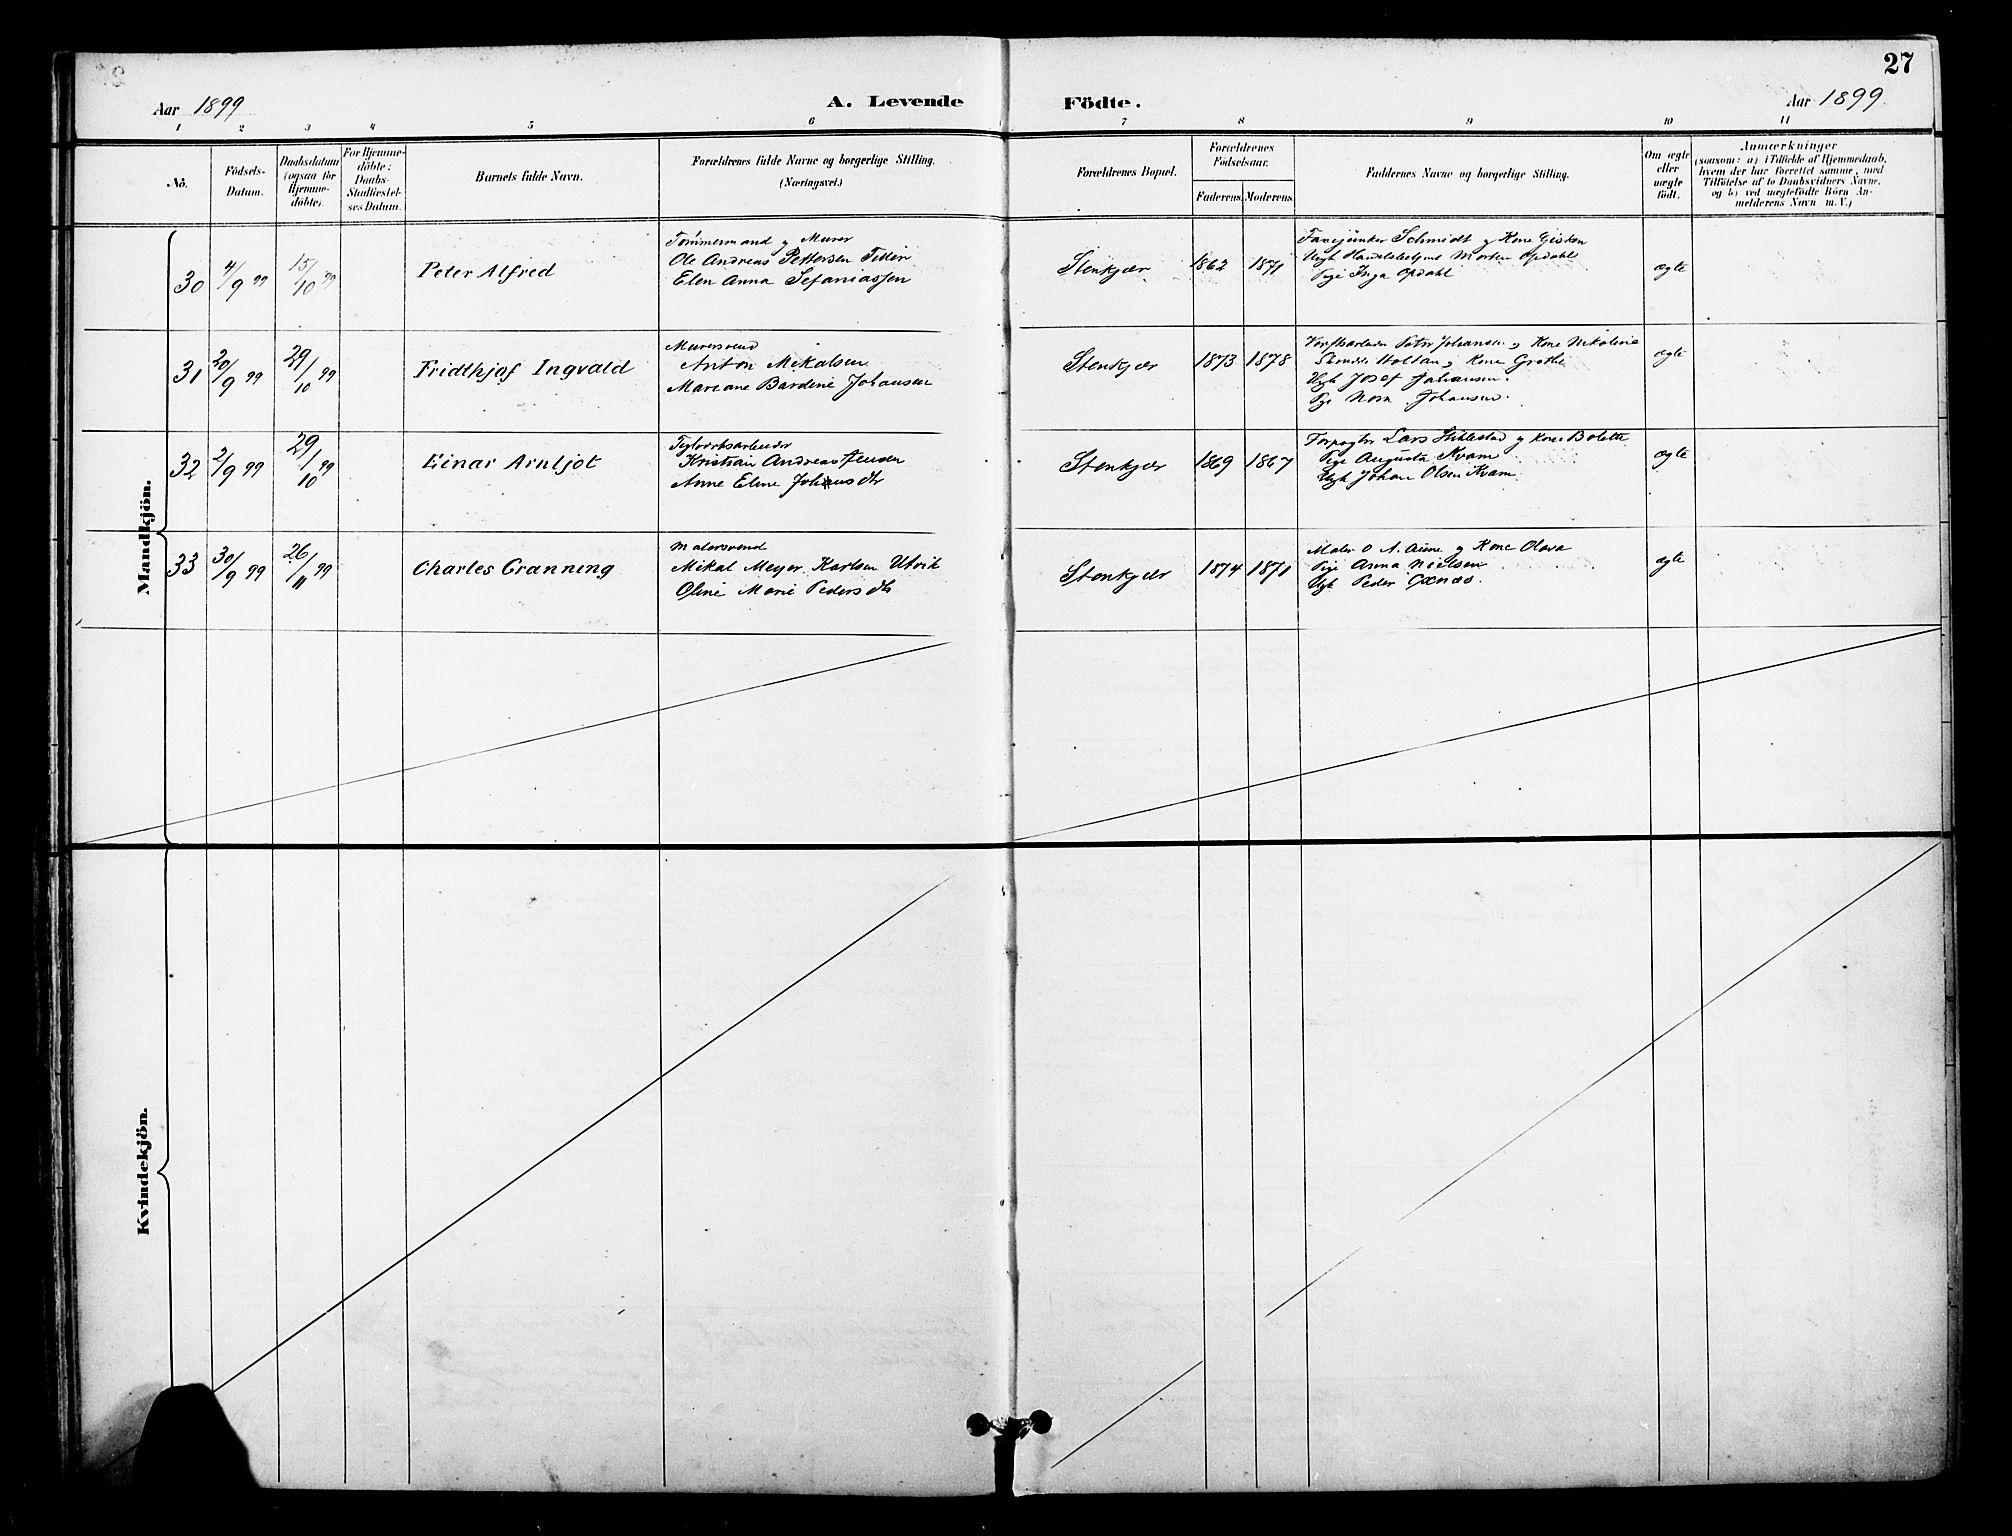 27
Aar 1899
A. Levende Födte.
Aar 1899
1 2 3 4 5 6 7 8 9 10 11
No.
Födsels-
Datum.
Daabsdatum
(ogsaa for
Hjemme-
döbte).
For Hjemme-
döbte:
Daabs-
Stadfæstel-
ses Datum.
Barnets fulde Navn.
Forældrenes fulde Navne og borgerlige Stilling.
(Næringsvei.)
Forældrenes Bopæl.
Forældrenes
Födselsaar.
Faderens. Moderens.
Faddernes Navne og borgerlige Stilling.
Om ægte
eller
uægte
födt.
Anmærkninger
(saasom: a) i Tilfælde af Hjemmedaab,
hvem der har forrettet samme, med
Tilföielse af to Daabsvidners Navne.
og b) ved uægtefödte Börn An-
melderens Navn m. V.)
Mandkjön.
30 4/9 99 15/10 99
Peter Alfred
Tømmermand og Murer
Ole Andreas Pettersen
Elen Anna Sefaniassen
Stenkjær 1862 1871
Schmidt og Kone Gisken
Ungk Morten Opdahl
Pige Inga Opdahl
ægte
31 20/9 99 29/10 99
Fridthjof Ingvald
Murersvend
Anton Mikalsen
Mareane Bardine Johansen
Stenkjær 1873 1878
Peter Johansen og Kone Nikoline
Holtan og Kone Grethe
Ungk Josef Johansen.
Pige Nora Johansen.
ægte
32 2/9 99 29/10 99
Einar Arnljot
Teglværksarbeider
Kristian Andreas
Anne Eline Johansdtr
Stenkjær 1869 1867
Forpagter Lars Stiklestad og Kone Bolette
Pige Augusta Kvam
Ungk Johan Olsen Kvam
ægte
33 30/9 99 26/11 99
Charles Granning
Malersvend
Mikal Meyer Karlsen Utvik
Oline Marie Pedersdtr
Stenkjær 1874 1871
Maler O A. Aune og Kone Olava
Pige Anna Nielsen
Ungk Peder Oxnæs.
ægte
Kvindekjön.